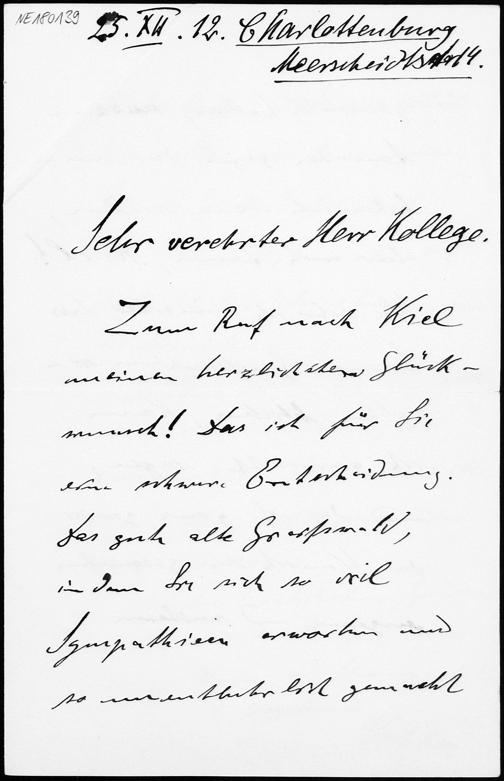 NE180139
25. XII. 12. Charlottenburg
Meerscheidtstr 14.
Sehr verehrter Herr Kollege.
Zum Ruf nach Kiel
meinen herzlichsten Glück-
wunsch! Das ist für Sie
eine schwere Entscheidung.
Das gute alte Greifswald,
in dem Sie sich so viel
Sympathieen erworben und
so unentbehrlich gemacht